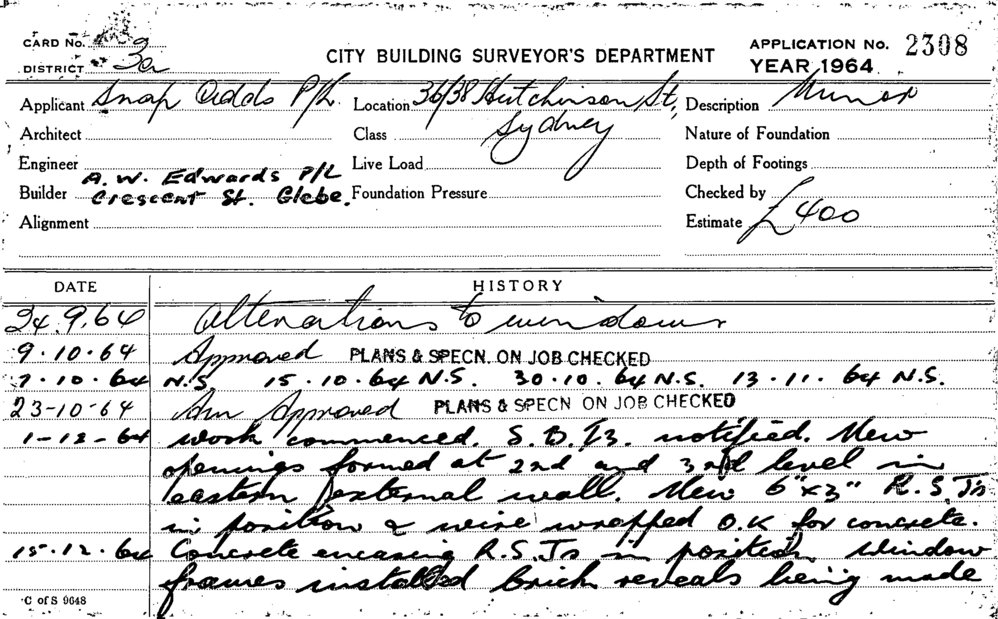 CARD No. 3
DISTRICT 3a
CITY BUILDING SURVEYOR'S DEPARTMENT
APPLICATION No. 2308
YEAR 1964
Applicant Snap Adds P/L. Location 36/38 Hutchinson St, Sydney Description Minor
Architect Class Nature of Foundation
Engineer Live Load Depth of Footings
Builder A. W. Edwards P/L Crescent St. Glebe. Foundation Pressure Checked by
Alignment Estimate £400
DATE HISTORY
24.9.64 Alterations to windows
9.10.64 Approved PLANS & SPECN. ON JOB CHECKED
7.10.64 N.S. 15.10.64 N.S. 30.10.64 N.S. 13.11.64 N.S.
23-10-64 Am Approved PLANS & SPECN ON JOB CHECKED
1-12-64 work commenced. S.B.I3. notified. New
openings formed at 2nd and 3rd level in
eastern external wall. New 6"x3" R.S.Js
in position & wire wrapped O.K for concrete.
15.12.64 Concrete encasing R.S.Js in position. Window
frames installed brick reveals being made
C of S 9648